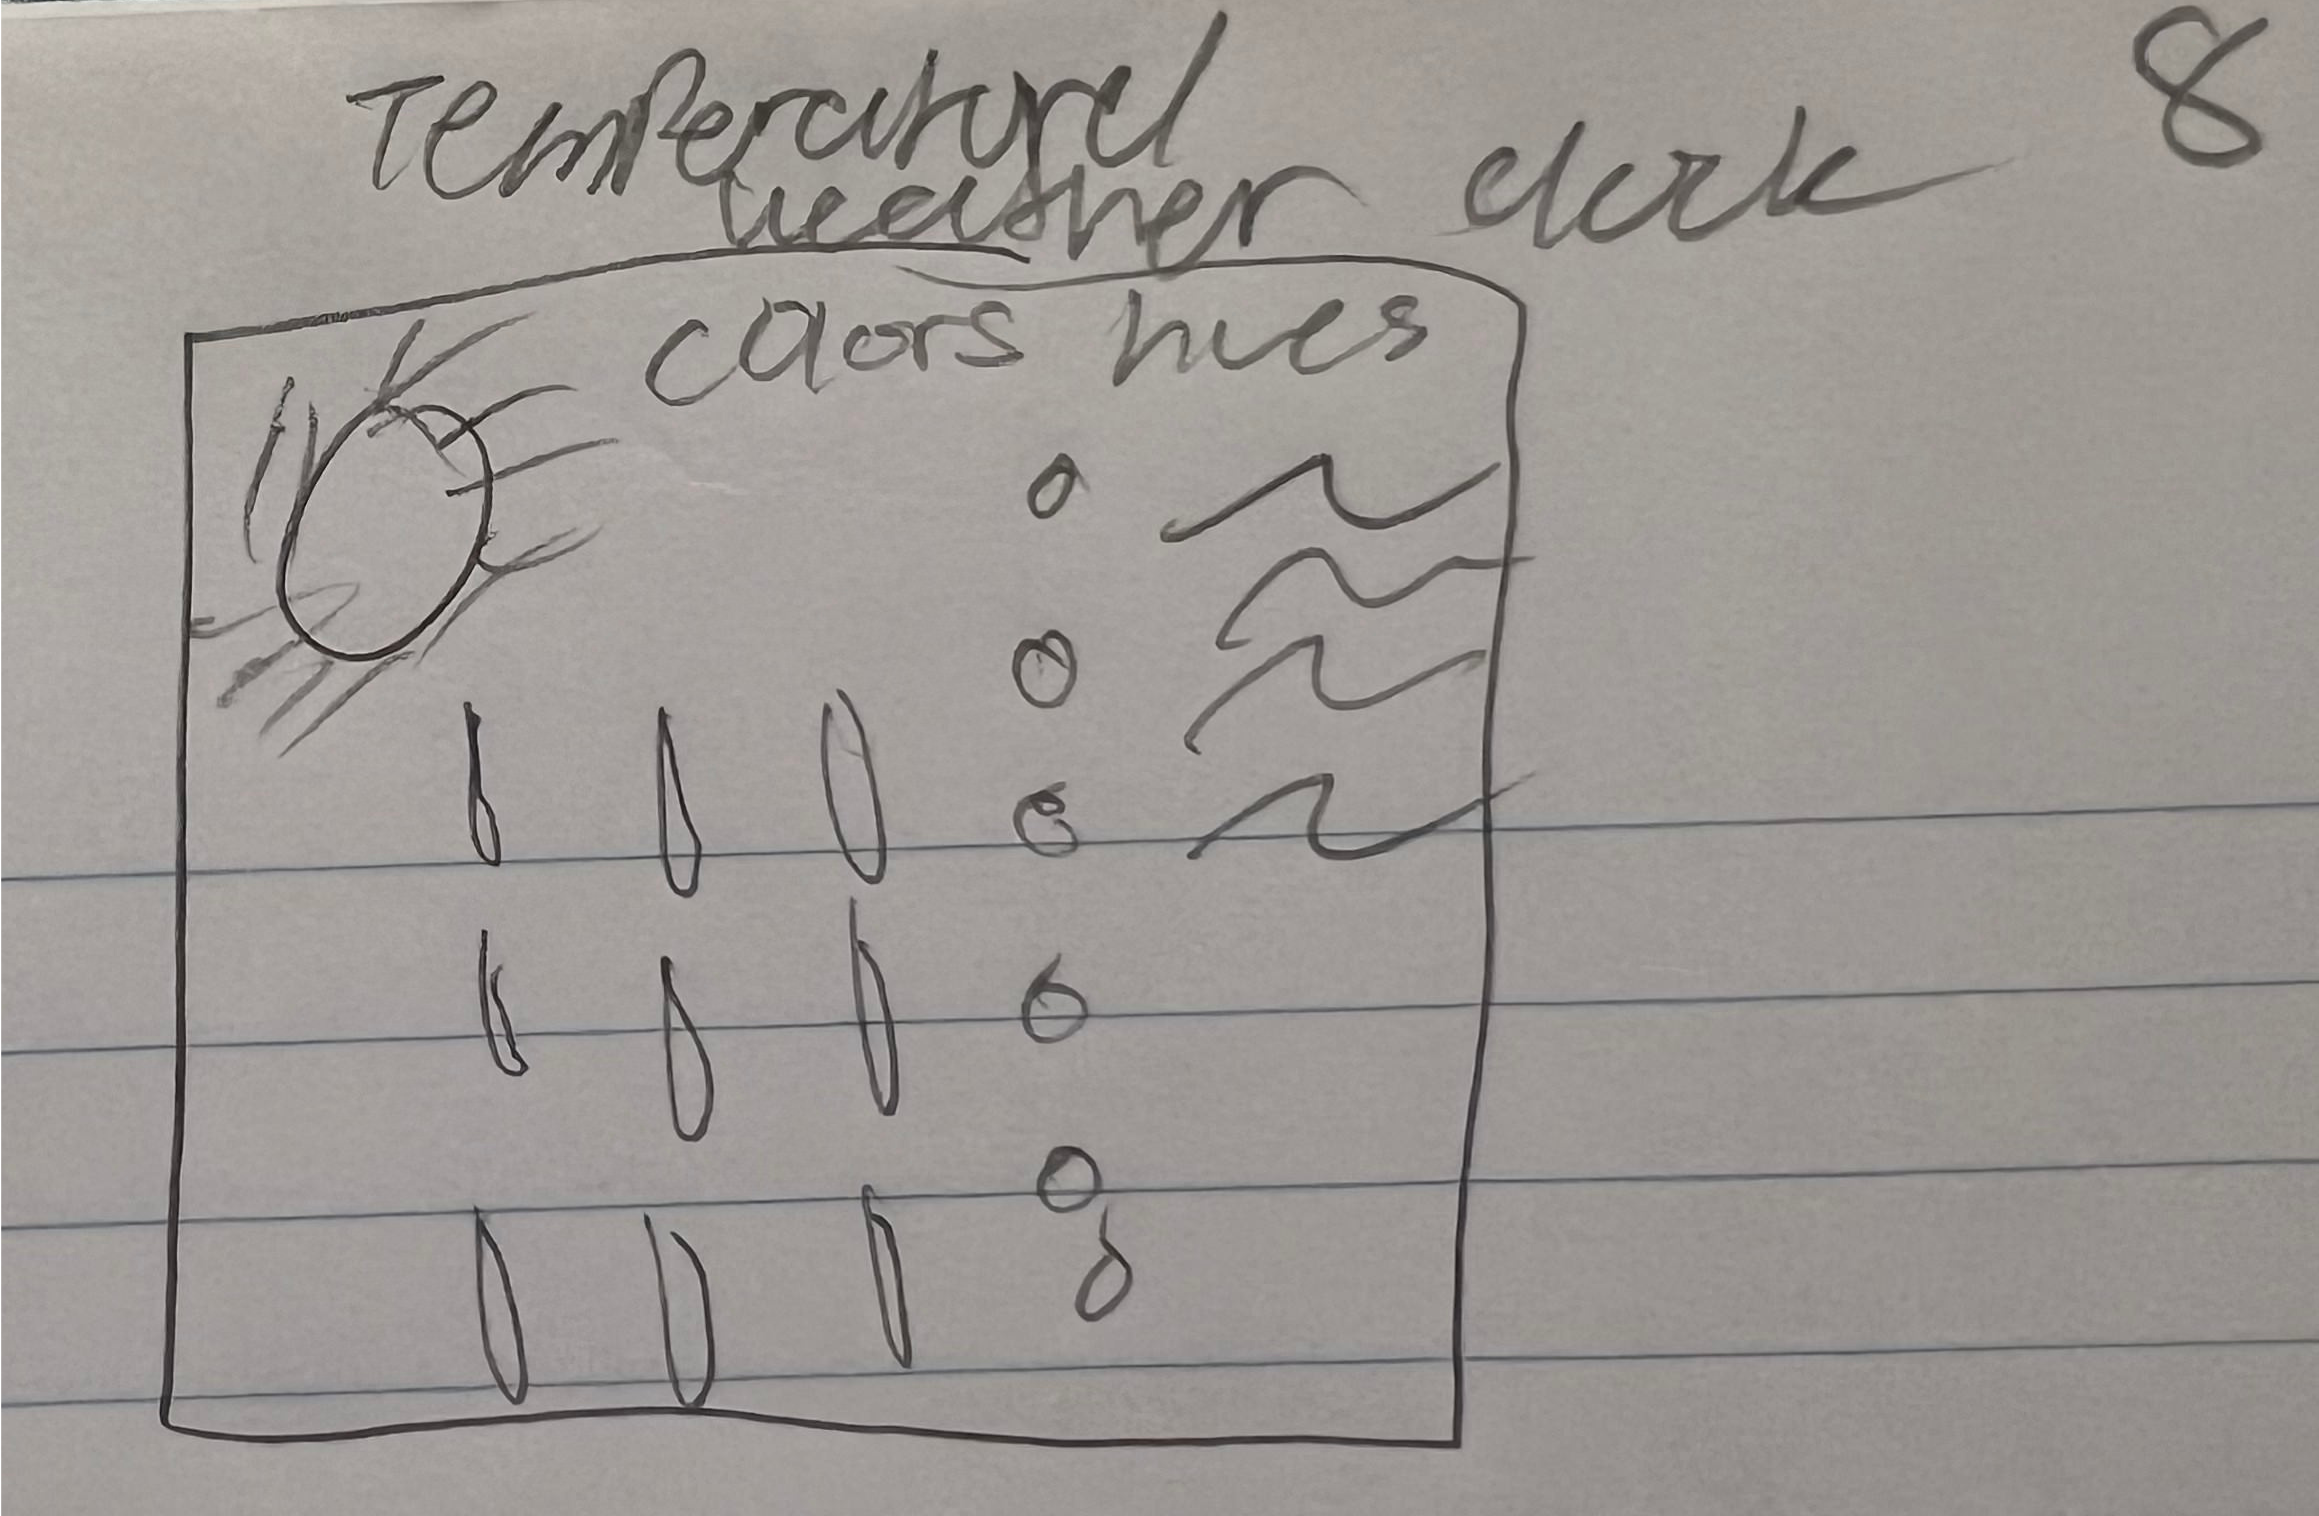 8
Temperature/
weather clock
colors hues